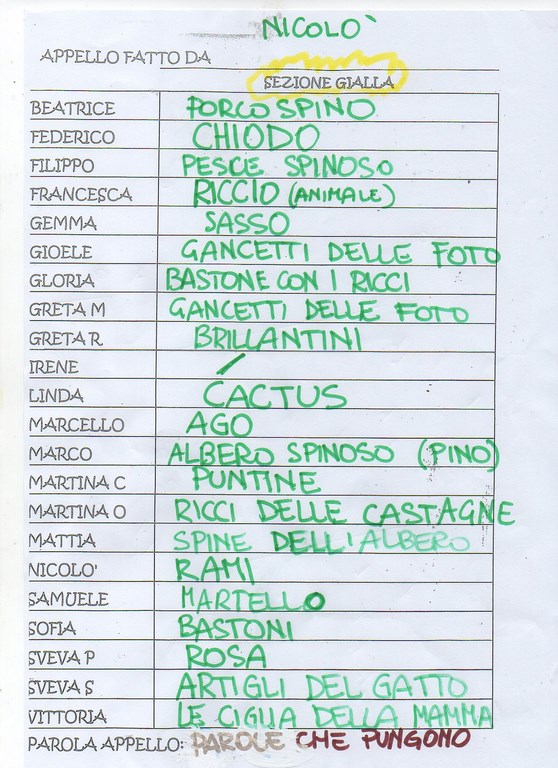 NICOLO'
APPELLO FATTO DA
SEZIONE GIALLA
BEATRICE PORCO SPINO
FEDERICO CHIODO
FILIPPO PESCE SPINOSO
FRANCESCA RICCIO (ANIMALE)
GEMMA SASSO
GIOELE GANCETTI DELLE FOTO
GLORIA BASTONE CON I RICCI
GRETA M GANCETTI DELLE FOTO
GRETA R BRILLANTINI
IRENE /
LINDA CACTUS
MARCELLO AGO
MARCO ALBERO SPINOSO (PINO)
MARTINA C PUNTINE
MARTINA O RICCI DELLE CASTAGNE
MATTIA SPINE DELL'ALBERO
NICOLO' RAMI
SAMUELE MARTELLO
SOFIA BASTONI
SVEVA P ROSA
SVEVA S ARTIGLI DEL GATTO
VITTORIA LE CIGLIA DELLA MAMMA
PAROLA APPELLO: PAROLE CHE PUNGONO